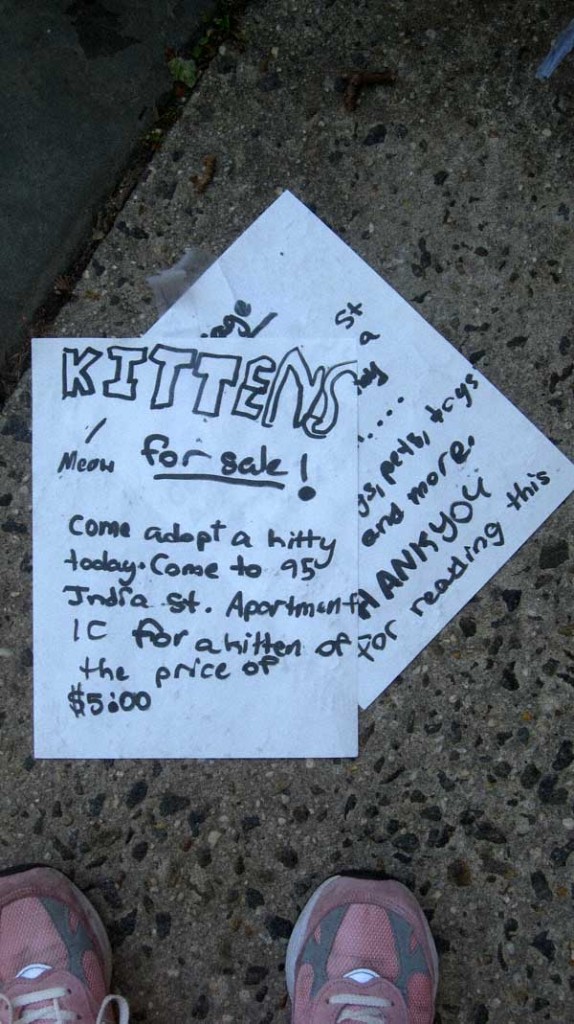 KITTENS
Meow for sale!
Come adopt a kitty
today. Come to 95
India St. Apartment
1C for a kitten of
the price of
$5:00
St
a
pets, toys
and more.
HANK YOU
For reading this